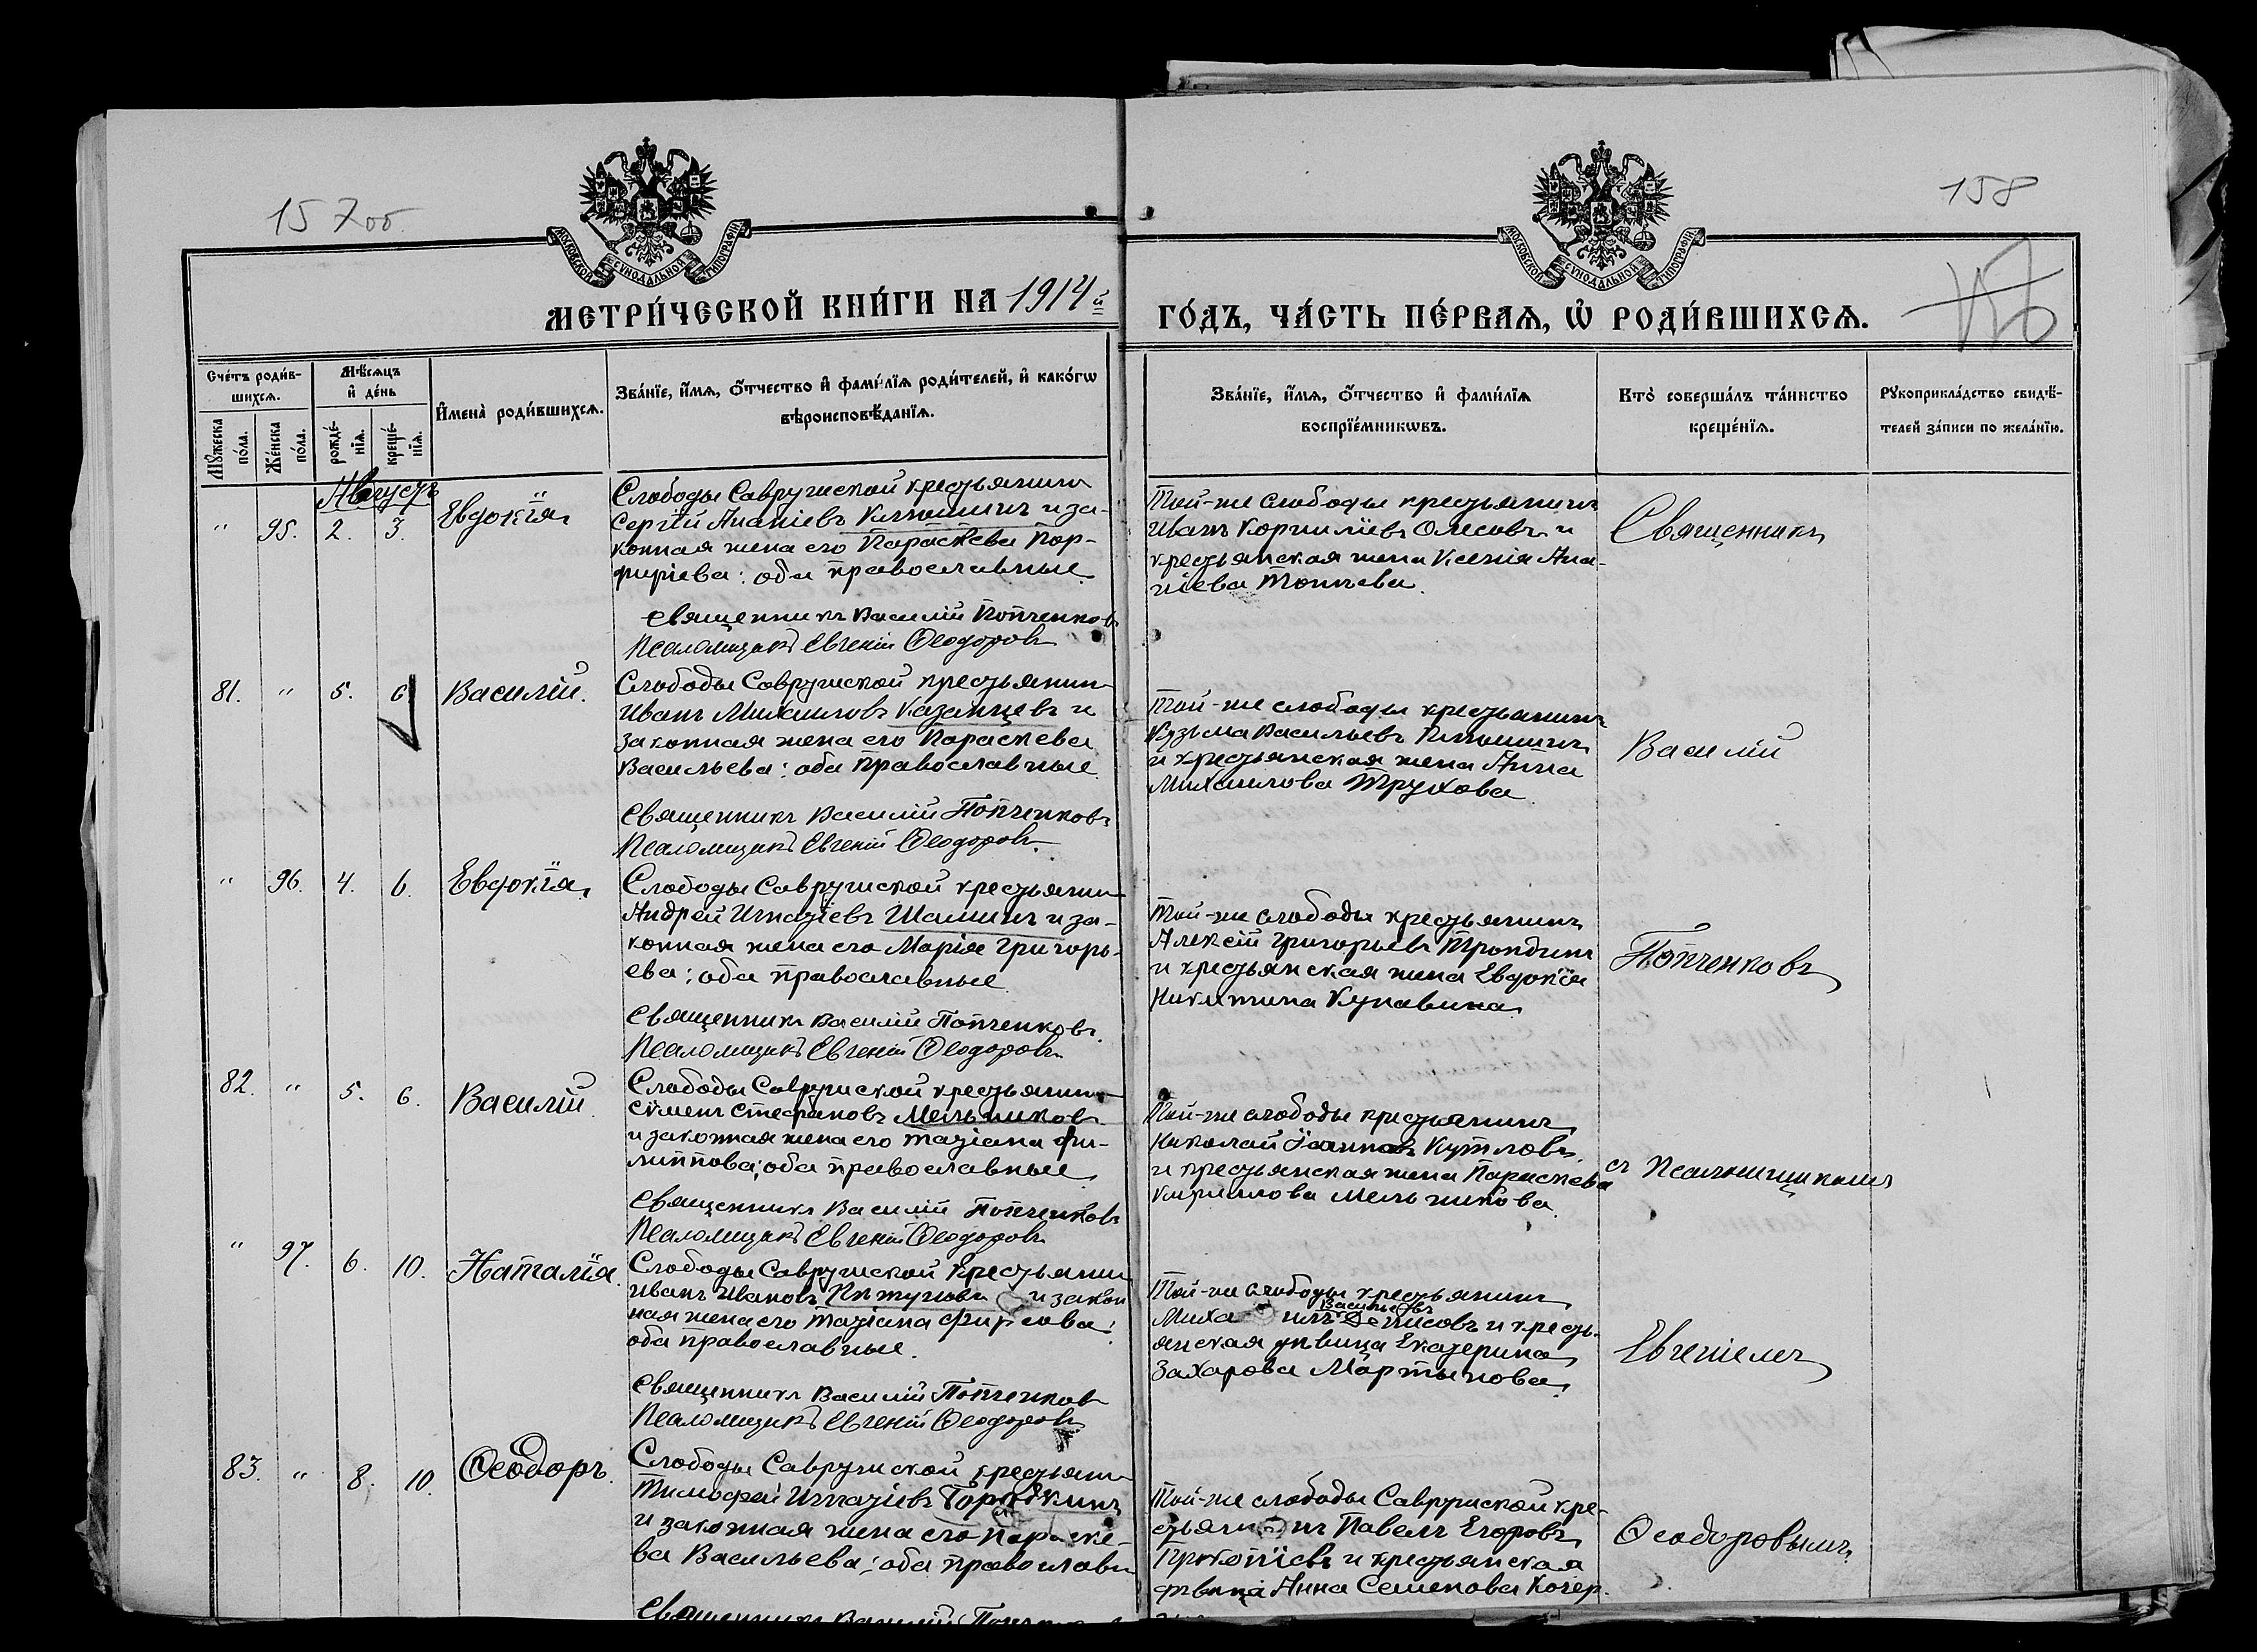 157об.
158
МОСКОВСКОЙ СУНОДАЛЬНОЙ ТИПОГРАФІИ
МОСКОВСКОЙ СУНОДАЛЬНОЙ ТИПОГРАФІИ
МЕТРИ́ЧЕСКОЙ КНИ́ГИ НА 1914й
ГО́ДЪ, ЧА́СТЬ ПЕ́РВАѦ, Ѡ҆ РОДИ́ВШИХСѦ.
Сче́тъ роди́в-
шихсѧ.
Мꙋ́жеска по́ла.
Же́нска по́ла.
Мѣ́сѧцъ и҆ де́нь
рожде́-нїѧ.
креще́-нїѧ.
И҆мена̀ роди́вшихсѧ.
Зва́нїе, и҆́мѧ, ѻ҆́тчество и҆ фами́лїѧ роди́телей, и҆ како́гѡ
вѣроисповѣ́данїѧ.
Зва́нїе, и҆́мѧ, ѻ҆́тчество и҆ фами́лїѧ
воспрїе́мникѡвъ.
Кто̀ соверша́лъ та́инство
креще́нїѧ.
Рꙋкоприкла́дство свидѣ́-
телей за́писи по жела́нїю.
Августъ
" 95. 2. 3. Евдокія
Слободы Савружской крестьянинъ
Сергій Ананіевъ и за-
конная жена его Параскева Пор-
фиріева: оба православные
Священникъ Василій Попченковъ
Псаломщикъ Евгеній Ѳеодоровъ
Той-же слободы крестьянинъ
Иванъ Корниліевъ и
крестьянская жена Ксенія Ана-
ніева
Священникъ
81. " 5. 6. Василій.
Слободы Савружской крестьянинъ
Иванъ Михаиловъ Казанцевъ и
законная жена его Параскева
Васильева: оба православные
Священникъ Василій Попченковъ
Псаломщикъ Евгеній Ѳеодоровъ
Той-же слободы крестьянинъ
Кузьма Васильевъ
и крестьянская жена Анна
Михаилова Трухова
Василій
" 96. 4. 6. Евдокія
Слободы Савружской крестьянинъ
Андрей Игнатіевъ Шашинъ и за-
конная жена его Марія Григорь-
ева; оба православные
Священникъ Василій Попченковъ
Псаломщикъ Евгеній Ѳеодоровъ
Той-же слободы крестьянинъ
Алексій Григорьевъ Трондинъ
и крестьянская жена Евдокія
Никитина Купавина
Попченковъ
82. " 5. 6. Василій.
Слободы Савружской крестьянинъ
Сѵмеонъ Стефановъ Мельниковъ
и законная жена его Татіана Фи-
липпова; оба православные
Священникъ Василій Попченковъ
Псаломщикъ Евгеній Ѳеодоровъ
Той-же слободы крестьянинъ
Николай Іоанновъ Кутловъ
и крестьянская жена Параскева
Кириллова Мельникова
съ псаломщикомъ
" 97. 6. 10. Наталія.
Слободы Савружской крестьянинъ
Иванъ Ивановъ и закон
ная жена его Татіана Фирсова:
оба православные.
Священникъ Василій Попченковъ
Псаломщикъ Евгеній Ѳеодоровъ
Той-же слободы крестьянинъ
Васильевъ
Миха илъ Денисовъ и кресть-
янская дѣвица Екатерина
Захарова Мартынова
Евгеніемъ
83. " 8. 10. Ѳеодоръ.
Слободы Савружской крестьянинъ
Тимофей Игнатіевъ
и законная жена его Параске-
ва Васильева; оба православн
Священникъ Василій Попченковъ
Той-же слободы Савружской кре-
стьянинъ Павелъ Егоровъ
Прокопіевъ и крестьянская
дѣвица Анна Семенова Кочер-
Ѳеодоровымъ